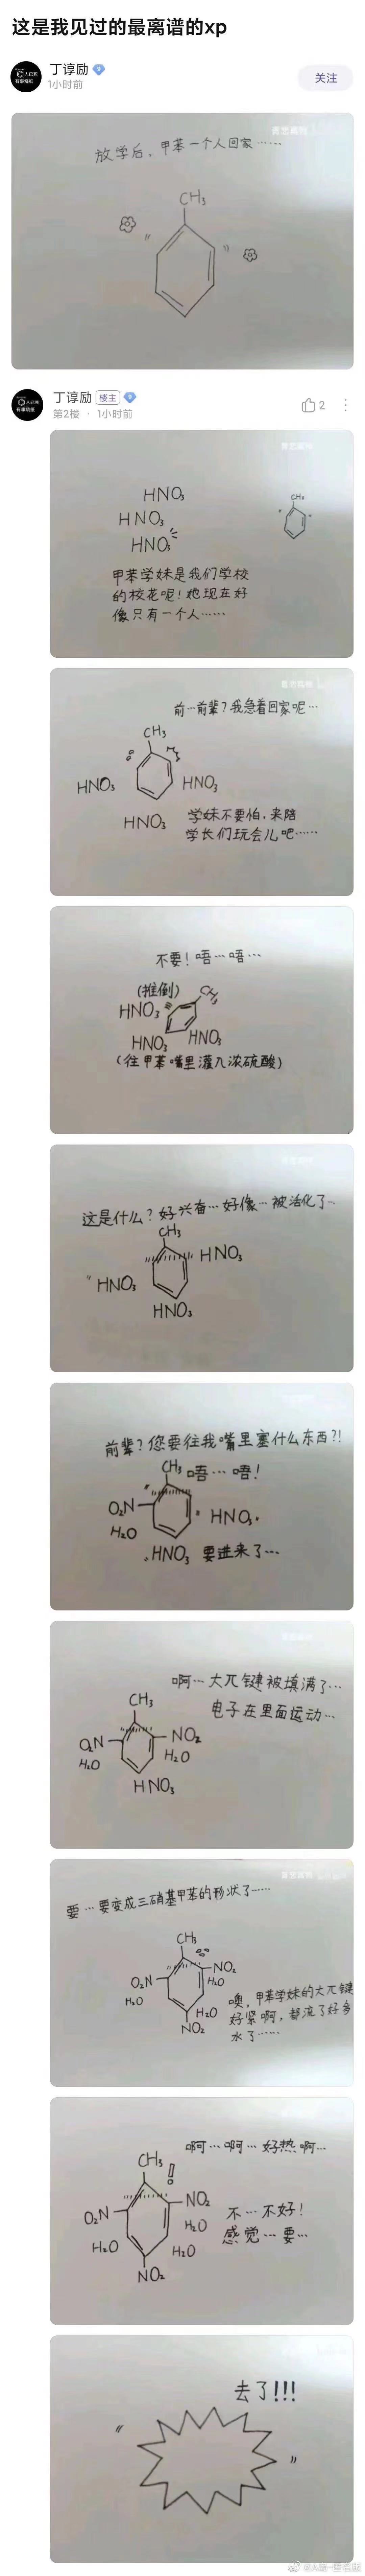 这是我见过的最离谱的xp
丁谆励
1小时前
关注
放学后,甲苯一个人回家……
CH₃
丁谆励 楼主
第2楼 · 1小时前
2
HNO₃
HNO₃
HNO₃
CH₃
甲苯学妹是我们学校
的校花呢!她现在好
像只有一个人……
前…前辈?我急着回家呢…
CH₃
HNO₃
HNO₃
HNO₃
学妹不要怕,来陪
学长们玩会儿吧……
不要!唔…唔…
(推倒)
CH₃
HNO₃
HNO₃
HNO₃
(往甲苯嘴里灌入浓硫酸)
这是什么?好兴奋…好像…被活化了~
CH₃
HNO₃
HNO₃
HNO₃
前辈?您要往我嘴里塞什么东西?!
CH₃
唔…唔!
O₂N
H₂O
HNO₃
HNO₃
要进来了…
啊…大π键被填满了…
电子在里面运动…
CH₃
O₂N
NO₂
H₂O
H₂O
HNO₃
要…要变成三硝基甲苯的形状了……
CH₃
O₂N
NO₂
H₂O
H₂O
H₂O
NO₂
噢,甲苯学妹的大π键
好紧啊,都流了好多
水了……
啊…啊…好热啊…
CH₃
!
O₂N
NO₂
H₂O
H₂O
H₂O
NO₂
不…不好!
感觉…要…
去了!!!